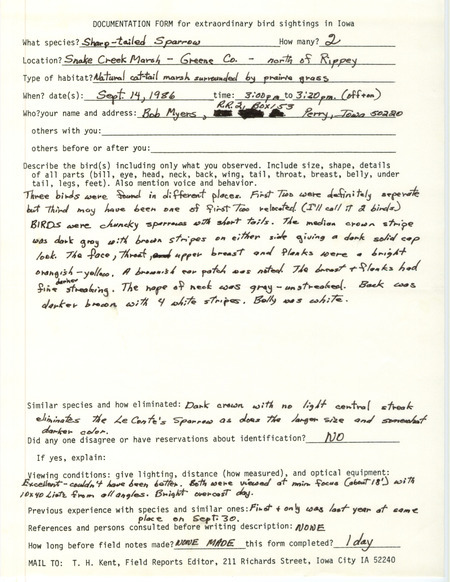 DOCUMENTATION FORM for extraordinary bird sightings in Iowa
What species? Sharp-tailed Sparrow How many? 2
Location? Snake Creek Marsh - Greene Co. - north of Rippey
Type of habitat? Natural cattail marsh surrounded by prairie grass
When? date(s): Sept. 14, 1986 time: 3:00 pm to 3:20 pm. (off+on)
R.R.2, Box 153
Who? your name and address: Bob Myers, Perry, Iowa 50220
others with you:
others before or after you:
Describe the bird(s) including only what you observed. Include size, shape, details
of all parts (bill, eye, head, neck, back, wing, tail, throat, breast, belly, under
tail, legs, feet). Also mention voice and behavior.
Three birds were found in different places. First Two were definitely seperate
but Third may have been one of first Two relocated (I'll call it 2 birds)
BIRDS were chunky sparrows with short tails. The median crown stripe
was dark gray with brown stripes on either side giving a dark solid cap
look. The face, Throat, upper breast and flanks were a bright
orangish-yellow. A brownish ear patch was noted The breast + flanks had
darker
fine streaking. The nape of neck was gray-unstreaked. Back was
darker brown with 4 white stripes. Belly was white.
Similar species and how eliminated: Dark crown with no light central streak
eliminates the LeConte's Sparrow as does the larger size and somewhat
darker color.
Did any one disagree or have reservations about identification? NO
If yes, explain:
Viewing conditions: give lighting, distance (how measured), and optical equipment:
Excellent-couldn't have been better. Both were viewed at min focus (about 18') with
10x40 Lietz from all angles. Bright overcast day.
Previous experience with species and similar ones: First + only was last year at same
place on Sept. 30.
References and persons consulted before writing description: NONE
How long before field notes made? NONE MADE this form completed? 1 day
MAIL TO: T. H. Kent, Field Reports Editor, 211 Richards Street, Iowa City IA 52240